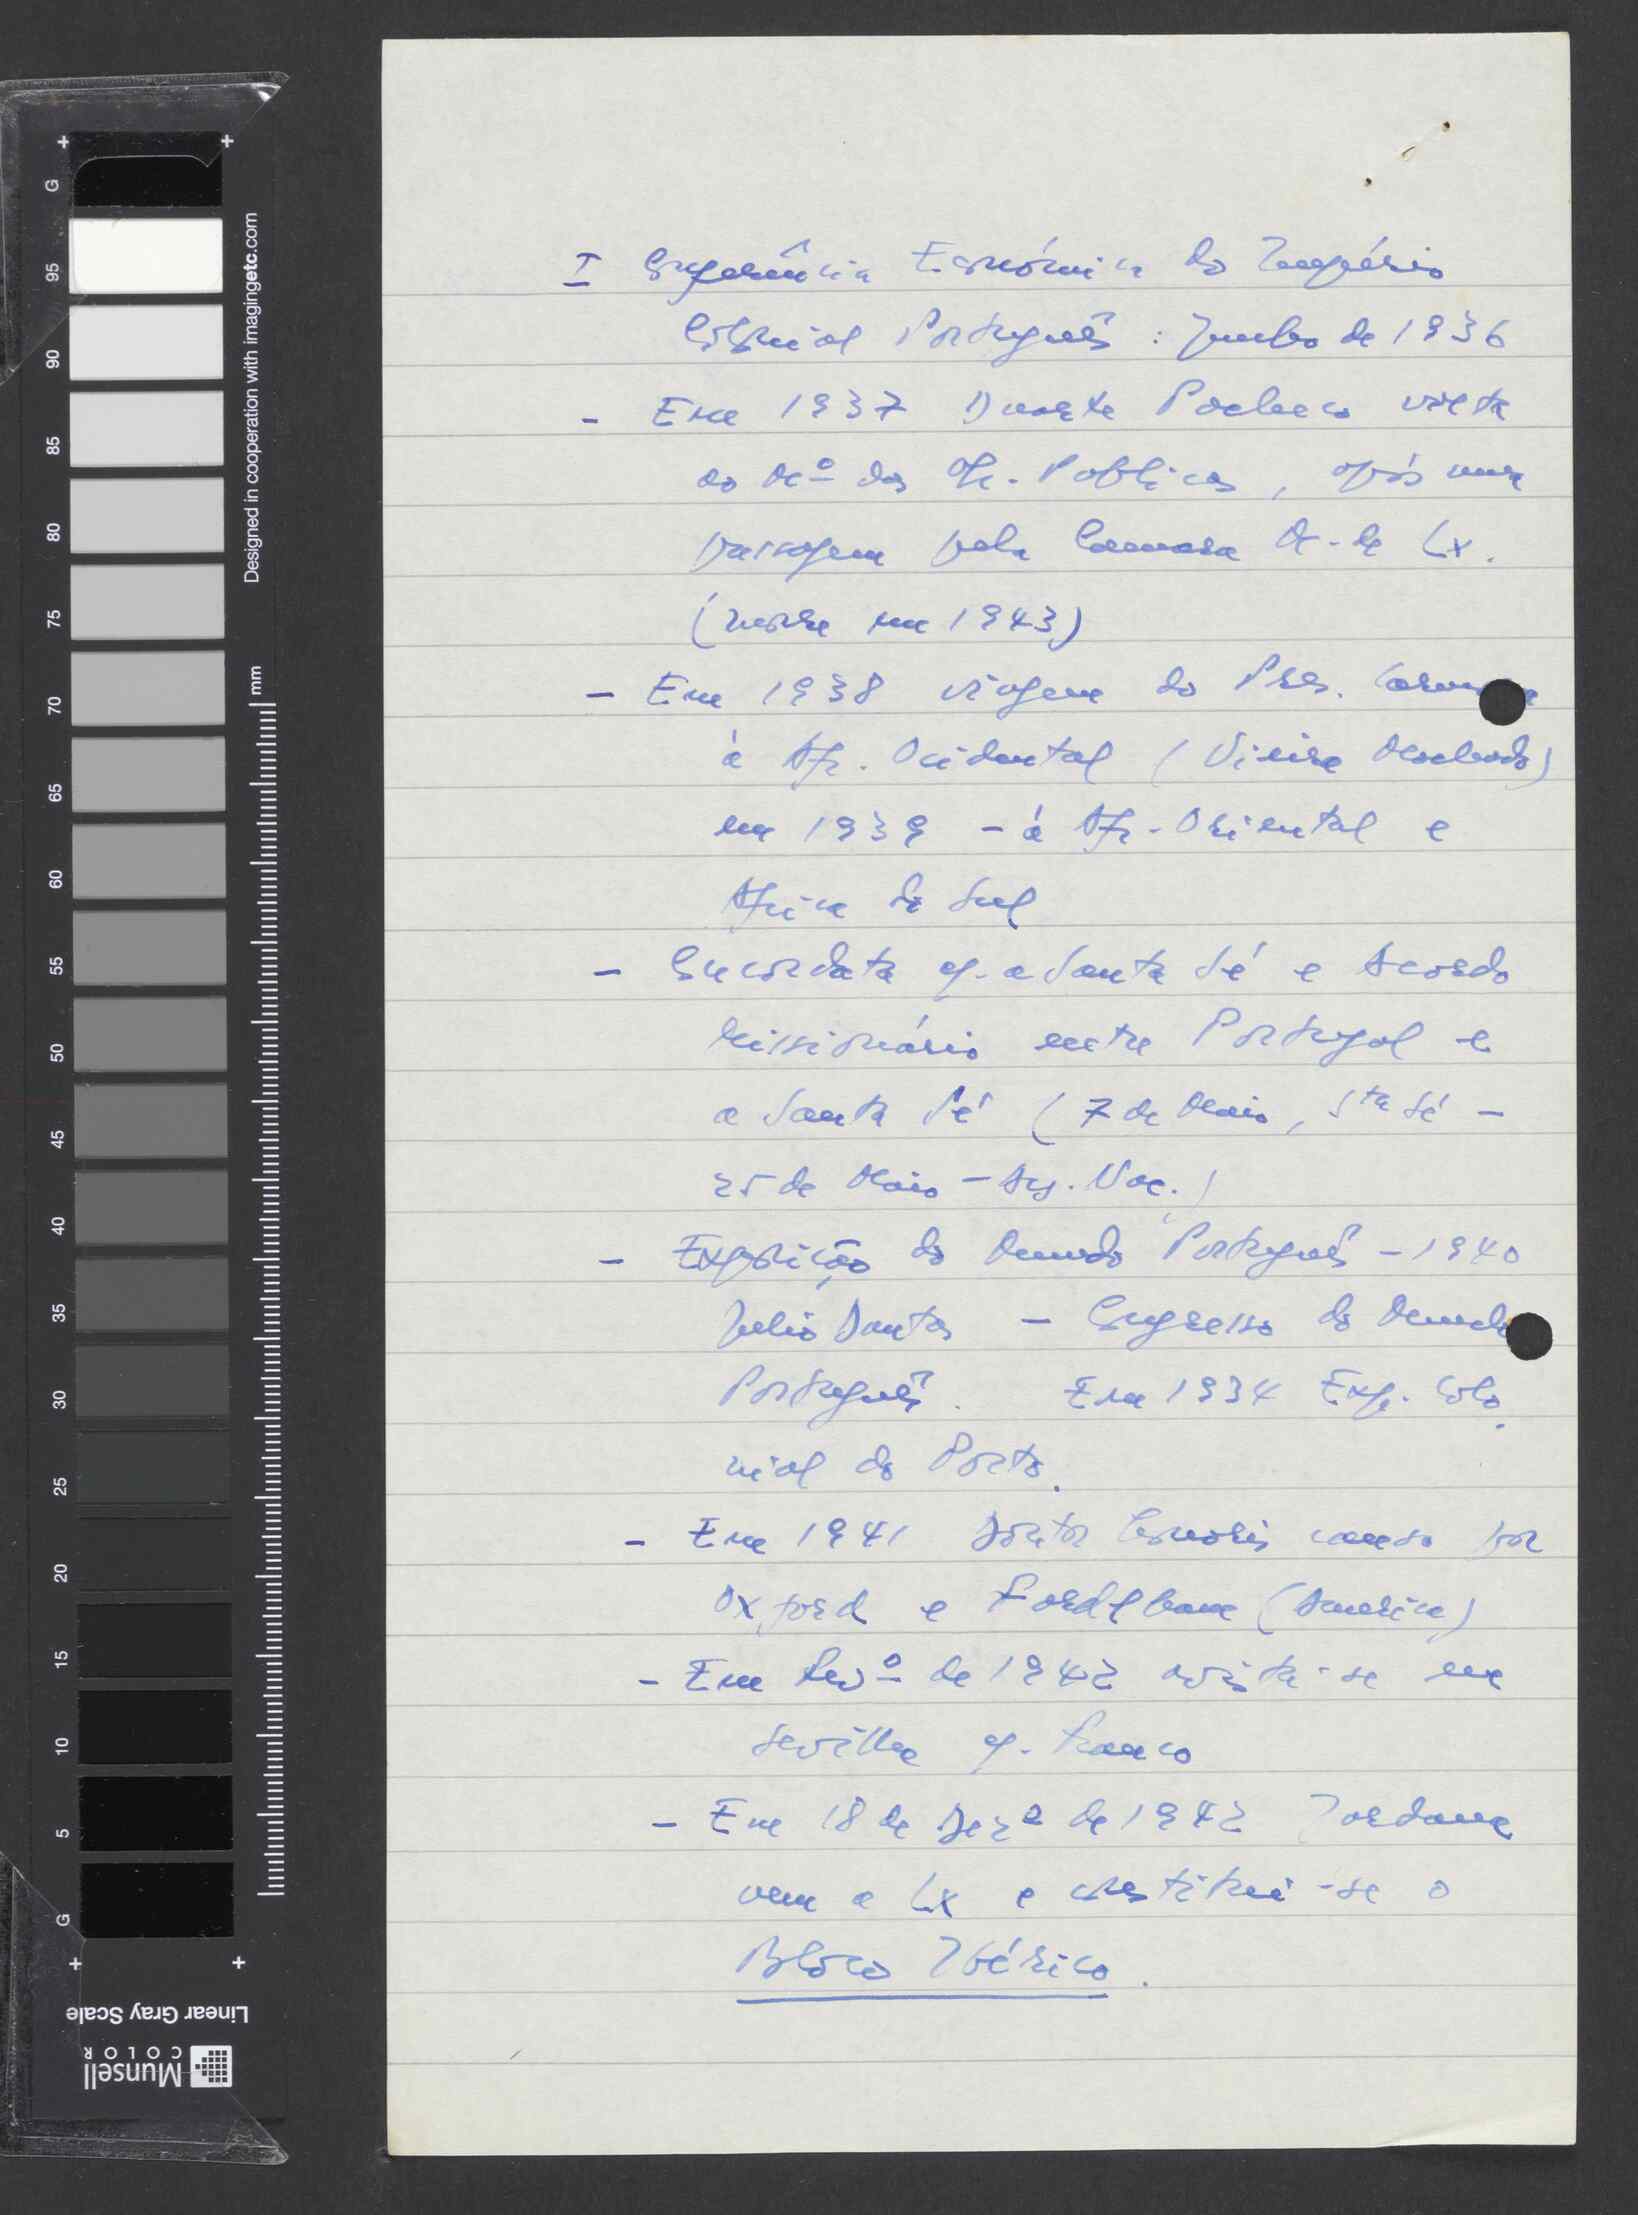 I Conferência Económica do Império
Colonial Português : Junho de 1936
- Em 1937 Duarte Pacheco volta
ao M.º das Ob. Publicas, após uma
passagem pela Camara M. de Lx.
(morre em 1943)
- Em 1938 viagem do Pres. Carmona
à Afr. Ocidental (Vieira Machado)
em 1939 - à Afr. Oriental e
Africa do Sul
- Concordata c/ a Santa Sé e Acordo
Missionário entre Portugal e
a Santa Sé (7 de Maio, Sta Sé -
25 de Maio - Ass. Nac.)
- Exposição do Mundo Português - 1940
Julio Dantas - Congresso do Mundo
Português. Em 1934 Exp. Colo
nial do Porto.
- Em 1941 Doutor honoris causa por
Oxford e Fordlham (America)
- Em Fevº de 1942 avista-se em
Sevilha c/. Franco
- Em 18 de Dezº de 1942 Jordana
vem a Lx e constitui-se o
Bloco Ibérico.
G
95
90
85
80
75
70
65
60
55
50
45
40
35
30
25
20
15
10
5
G
Designed in cooperation with imagingetc.com
mm
Linear Gray Scale
Munsell
COLOR